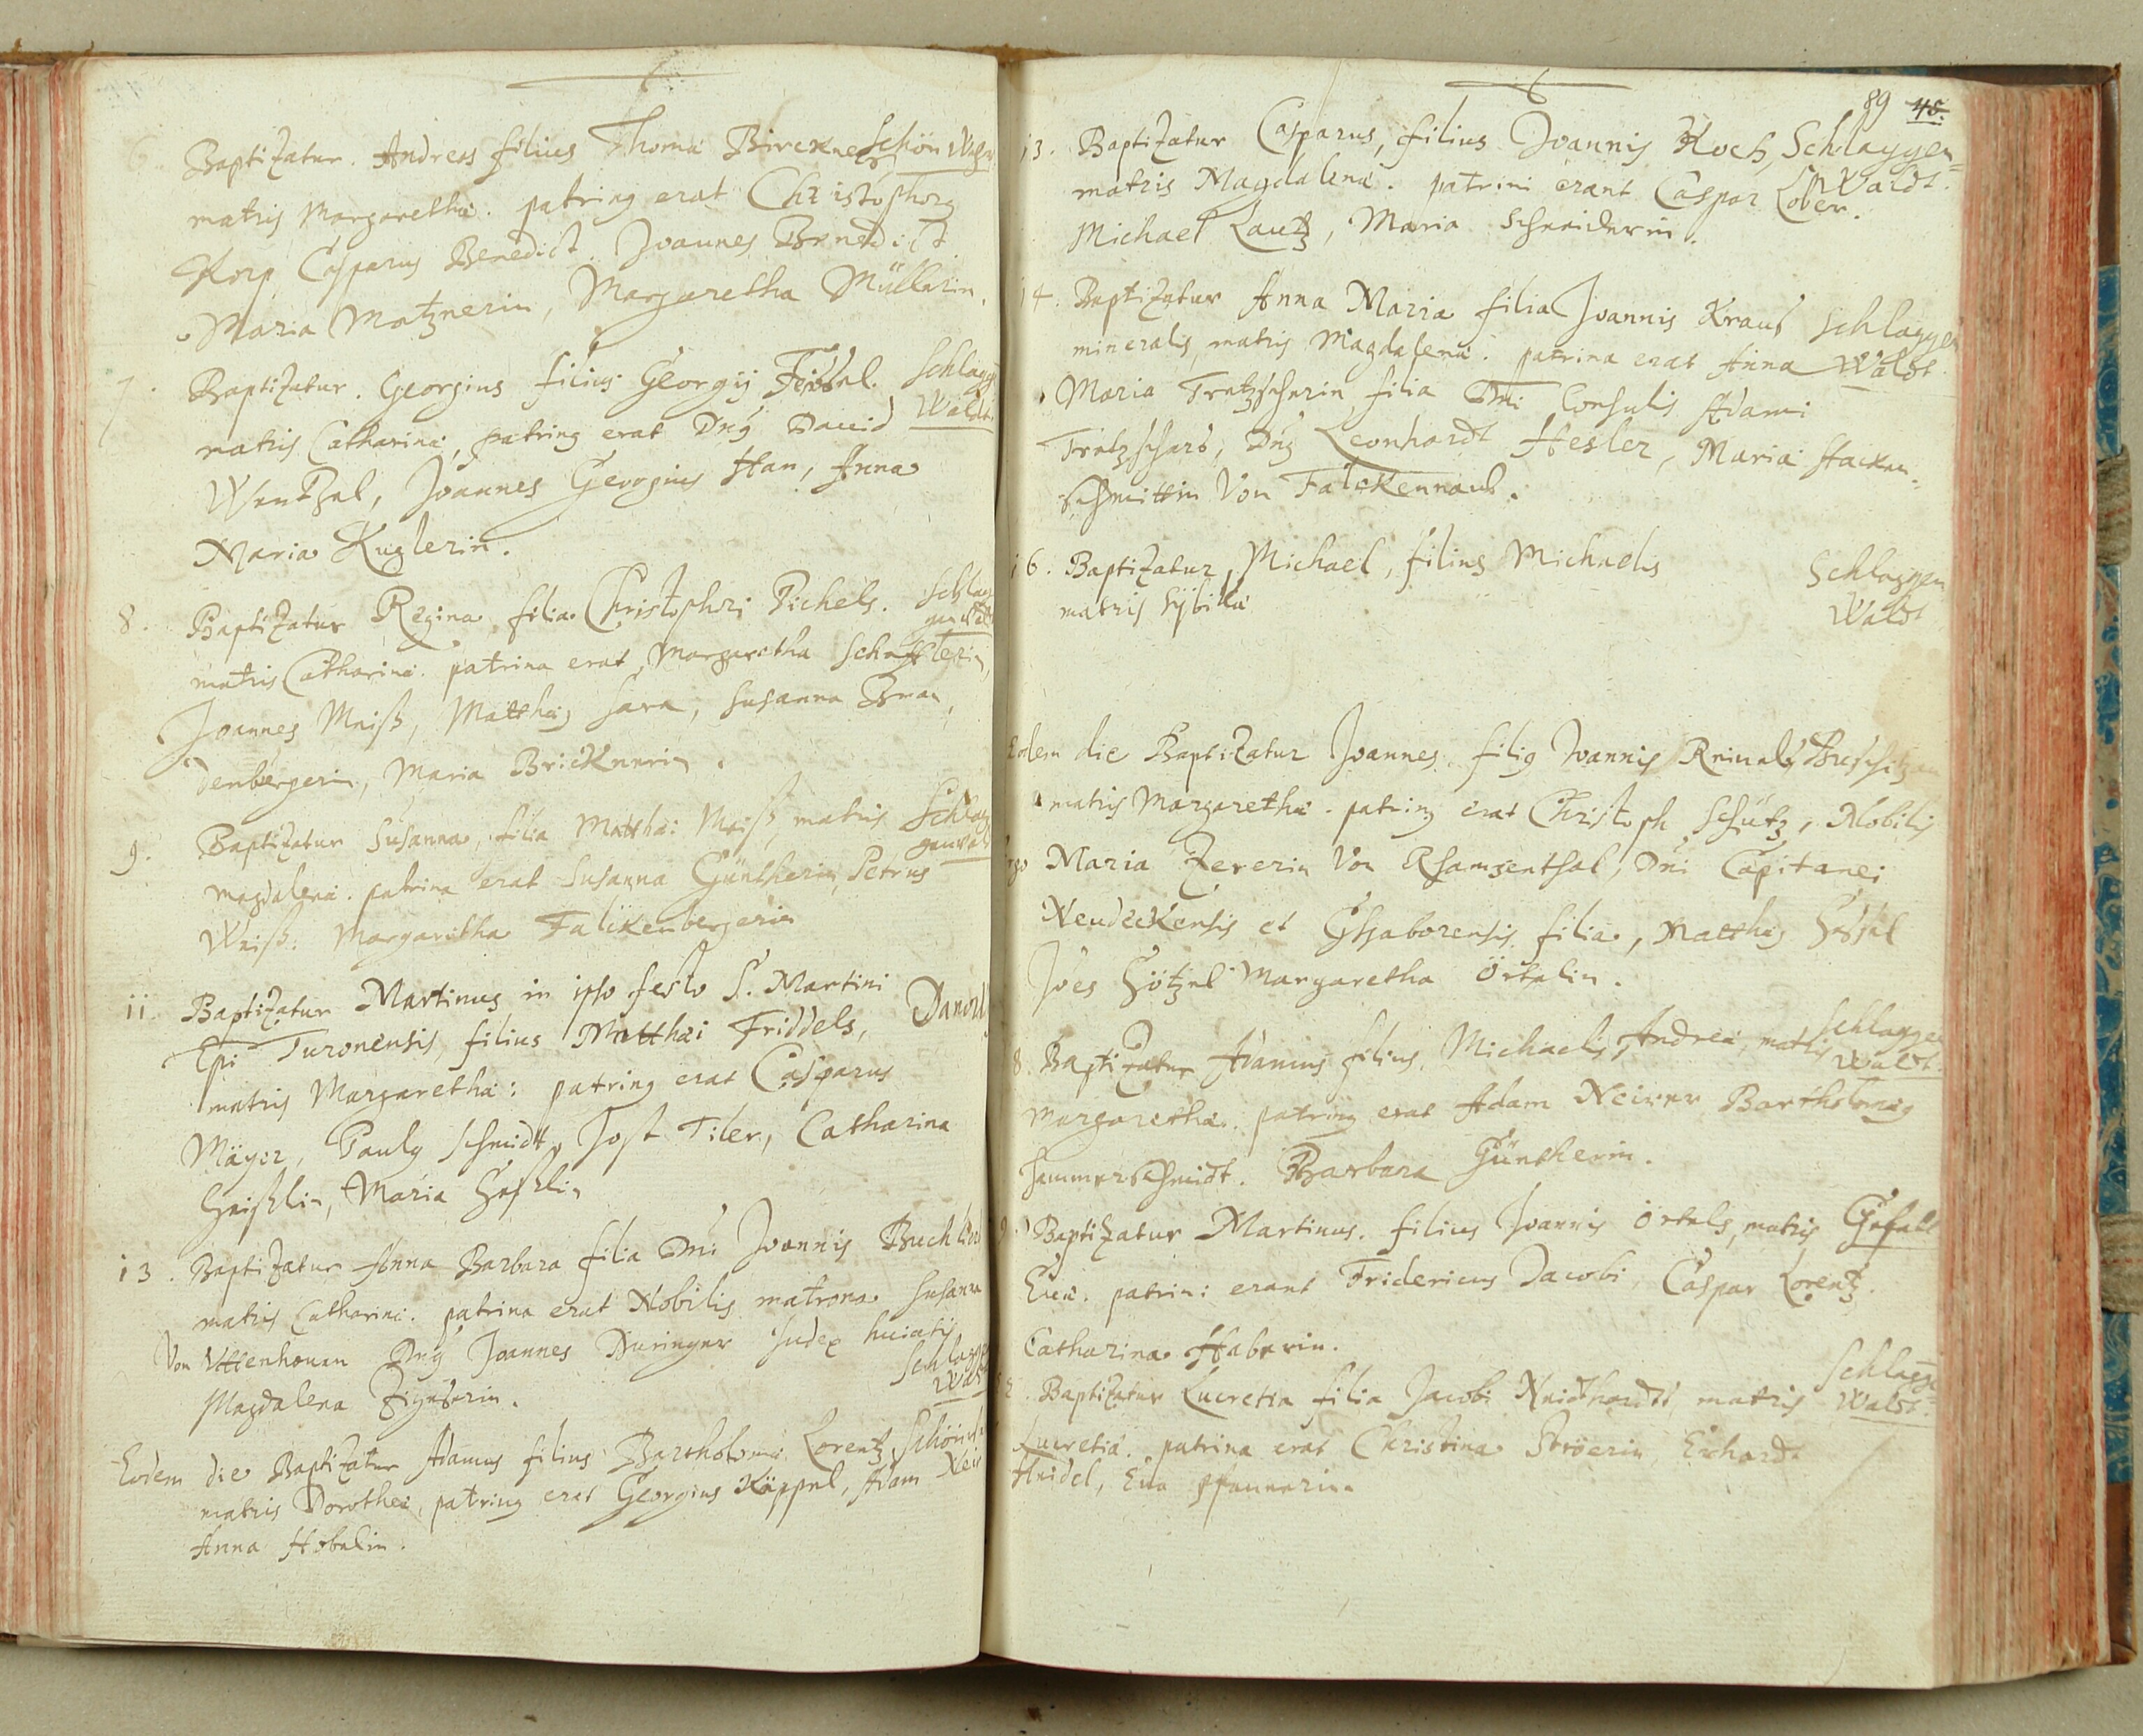 6. Baptizatur. Andreas filius Thomæ Birckner Schön Wehr
matris Margarethæ. patrinus erat Christophorus
Korp Casparus Benedict. Joannes Benedict
Maria Matznerin, Margaretha Müllerin.
7. Baptizatur. Georgius filius Georgij Feissel. Schlagg
matris Catharinæ, patrinus erat Dnus Dauid Waldt
Wentzel, Joannes Georgius Han, Anna
Maria Kuglerin.
8. Baptizatur Regina filia Christophori Pichels. Schlag
matris Catharinæ. patrina erat Margaretha Schafflerin genwalt
Joannes Weiß, Matthæus Sara, Susanna Bran
denbergerin, Maria Bricknerin.
9. Baptizatur Susanna, filia Matthæi Weiß, matris Schlag
Magdalenæ. patrina erat Susanna Güntherin, Petrus genwalt
Weiß: Margaritha Falckenbergerin
11. Baptizatur Martinus in ipso festo S. Martini
Epi Turonensis, filius Matthæi Friddels, Danord
matris Margarethæ: patrinus erat Casparus
Mäyer, Paulus Schmidt, Jost Tiler, Catharina
Geißlin, Maria
13. Baptizatur Anna Barbara filia Dni Joannis Buchlied
matris Catharinæ. patrina erat Nobilis matrona Susanna
Von Uttenhouen Dnus Joannes Düringer Judex huiatis
Magdalena Schlagge Waldt
Eodem die Baptizatur Adamus filius Bartholomæi Lorentz, Schönwehr
matris Dorotheæ, patrinus erat Georgius Käppel, Adam
Anna Höbelin.
89 48.
13. Baptizatur Casparus, filius Joannis Koch, Schlaggen=
matris Magdalenæ. patrini erant Caspar Löber. Waldt.
Michael Lautz, Maria Schneiderin.
14. Baptizatur Anna Maria filia Joannis Kraus Schlaggen
mineralis, matris Magdalenæ. patrina erat Anna Waldt.
Maria Tretzscherin filia Dni Consulis Adami
Tretzschers, Dnus Leonhardt Hesler, Maria Hacken
schmittin Von Falckennaw.
16. Baptizatur, Michael, filius Michaelis Schlaggen
matris Sÿbillæ Waldt
Eodem die Baptizatur Joannes. filius Joannis Reinals
matris Margarethæ. patrinus erat Christoph Schütz, Nobilis
Virgo Maria Von Dni Capitanei
Neudeckensis et filia, Matthæus
Joes Margaretha Örtelin.
8. Baptizatur Adamus filius Michaelis Andreæ, matris Schlaggen
Margarethæ. patrinus erat Adam Bartholomæus Waldt.
Hammerschmidt. Barbara Güntherin.
9. Baptizatur Martinus. filius Joannis Örtels, matris Gefäll
Euæ. patrini erant Fridericus Jacobi, Caspar Lorentz.
Catharina Haberin.
Baptizatur Lucretia filia Jacobi Neidhardts matris Schlagge
Lucretiæ. patrina erat Christina Eichardt Waldt.
Heidel, Eua Pfannerin.